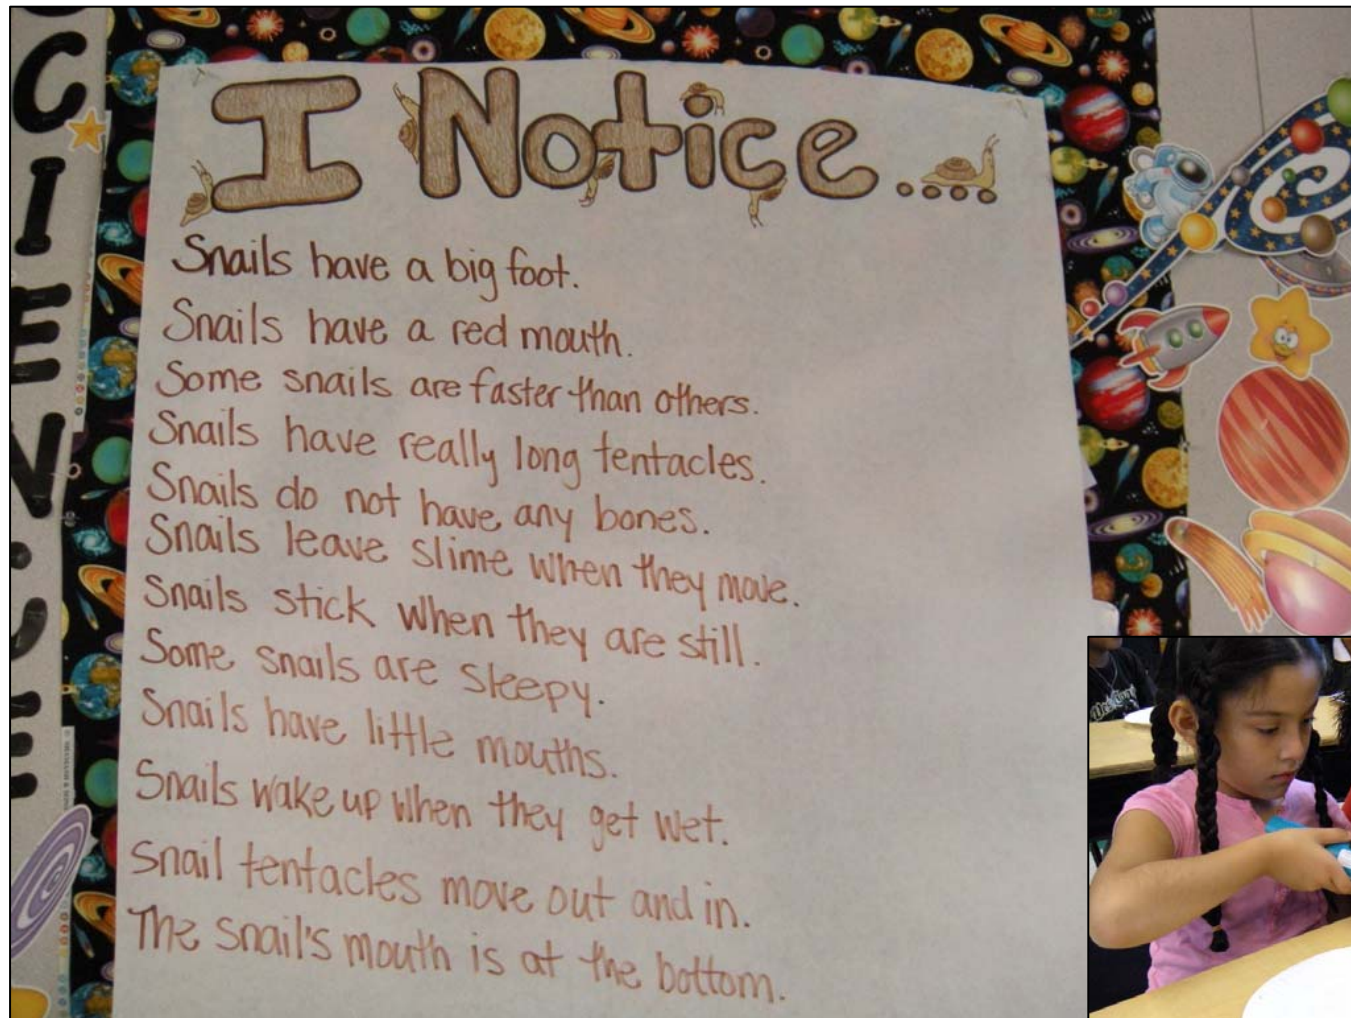 SCIENCE
I Notice....
Snails have a big foot.
Snails have a red mouth.
Some snails are faster than others.
Snails have really long tentacles.
Snails do not have any bones.
Snails leave slime when they move.
Snails stick when they are still.
Some snails are sleepy.
Snails have little mouths.
Snails wake up when they get wet.
Snail tentacles move out and in.
The snail's mouth is at the bottom.